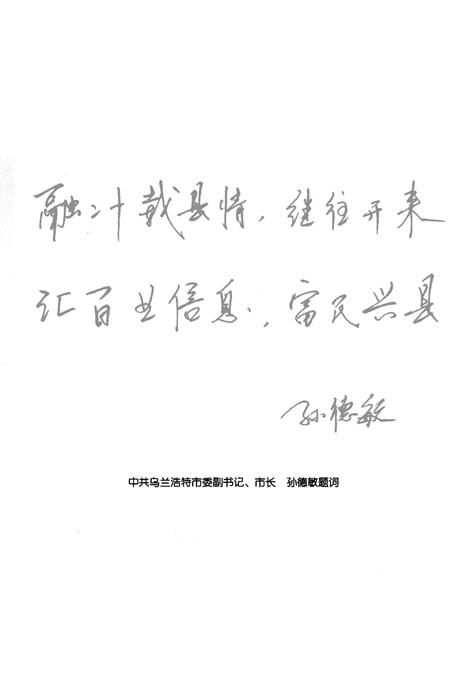 融二十载县情，继往开来
汇百业信息，富民兴县
孙德敏
中共乌兰浩特市委副书记、市长　孙德敏题词